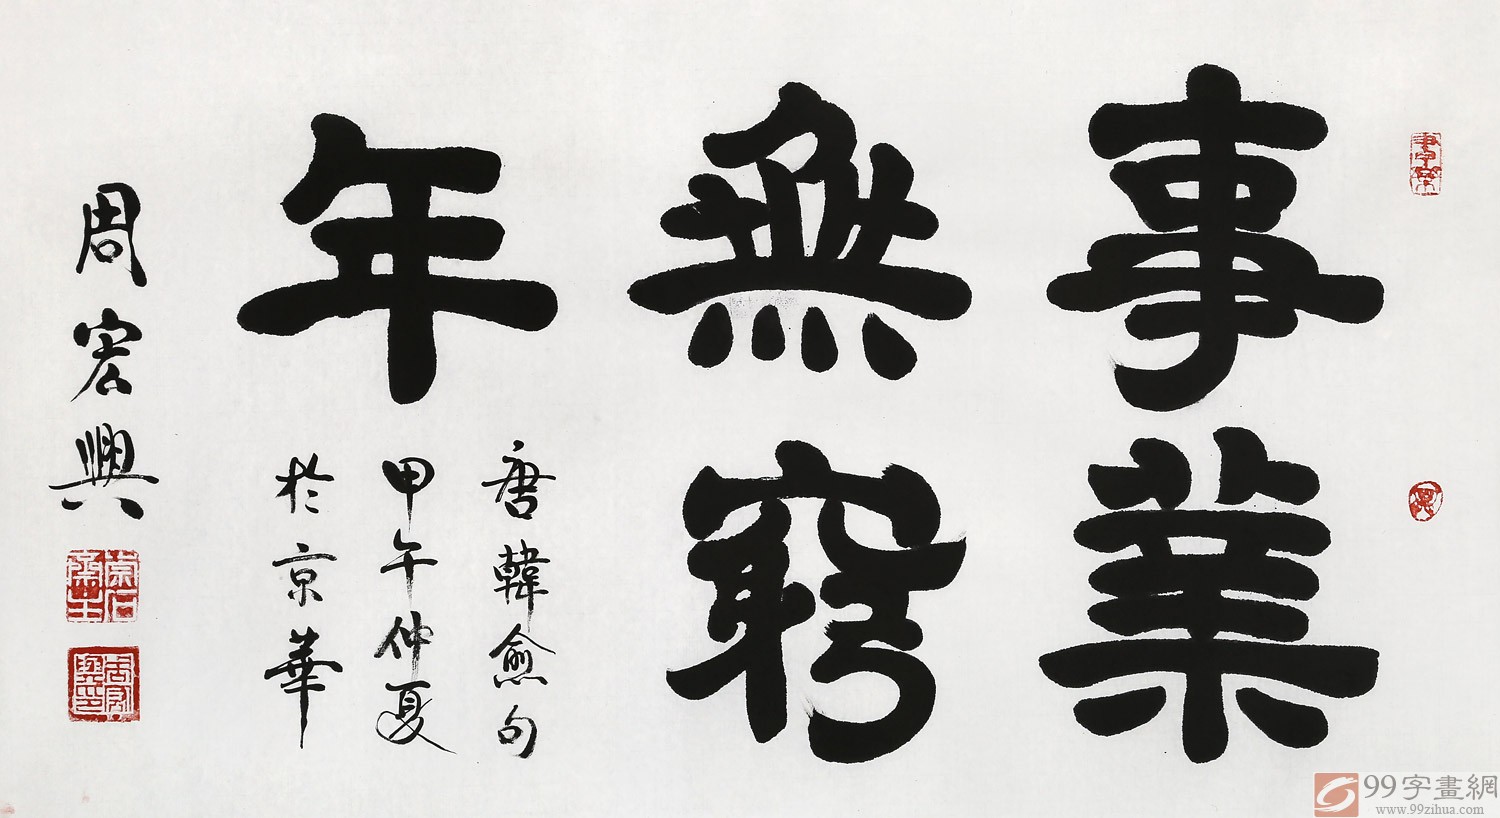 事業
無窮
年
唐韓愈句
甲午仲夏
於京華
周宏興
99字畫網
www.99zihua.com